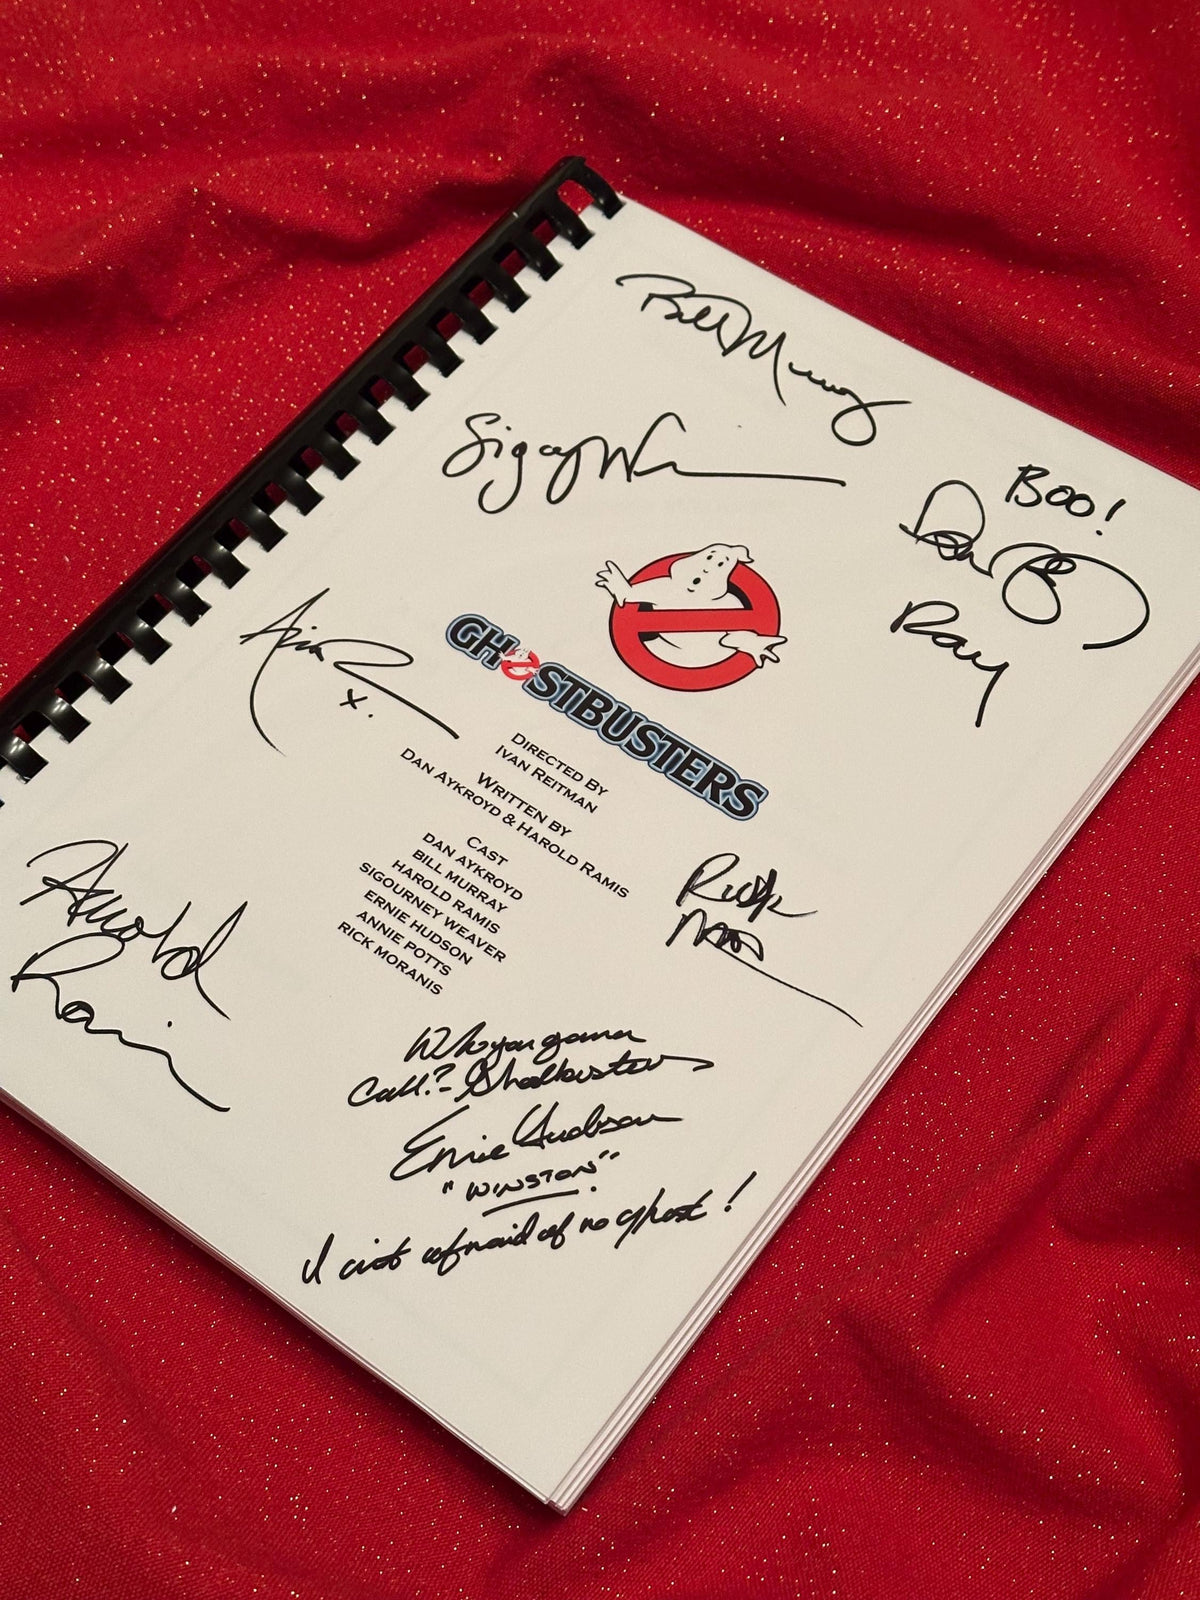 Bill Murray
Sigourney W
BOO!
Dan
Ray
GHOSTBUSTERS
DIRECTED BY
IVAN REITMAN
WRITTEN BY
DAN AYKROYD & HAROLD RAMIS
CAST
DAN AYKROYD
BILL MURRAY
HAROLD RAMIS
SIGOURNEY WEAVER
ERNIE HUDSON
ANNIE POTTS
RICK MORANIS
x.
Rick
Who you gonna
Call?- Ghostbusters
Ernie Hudson
"WINSTON"
I aint afraid of no ghost!